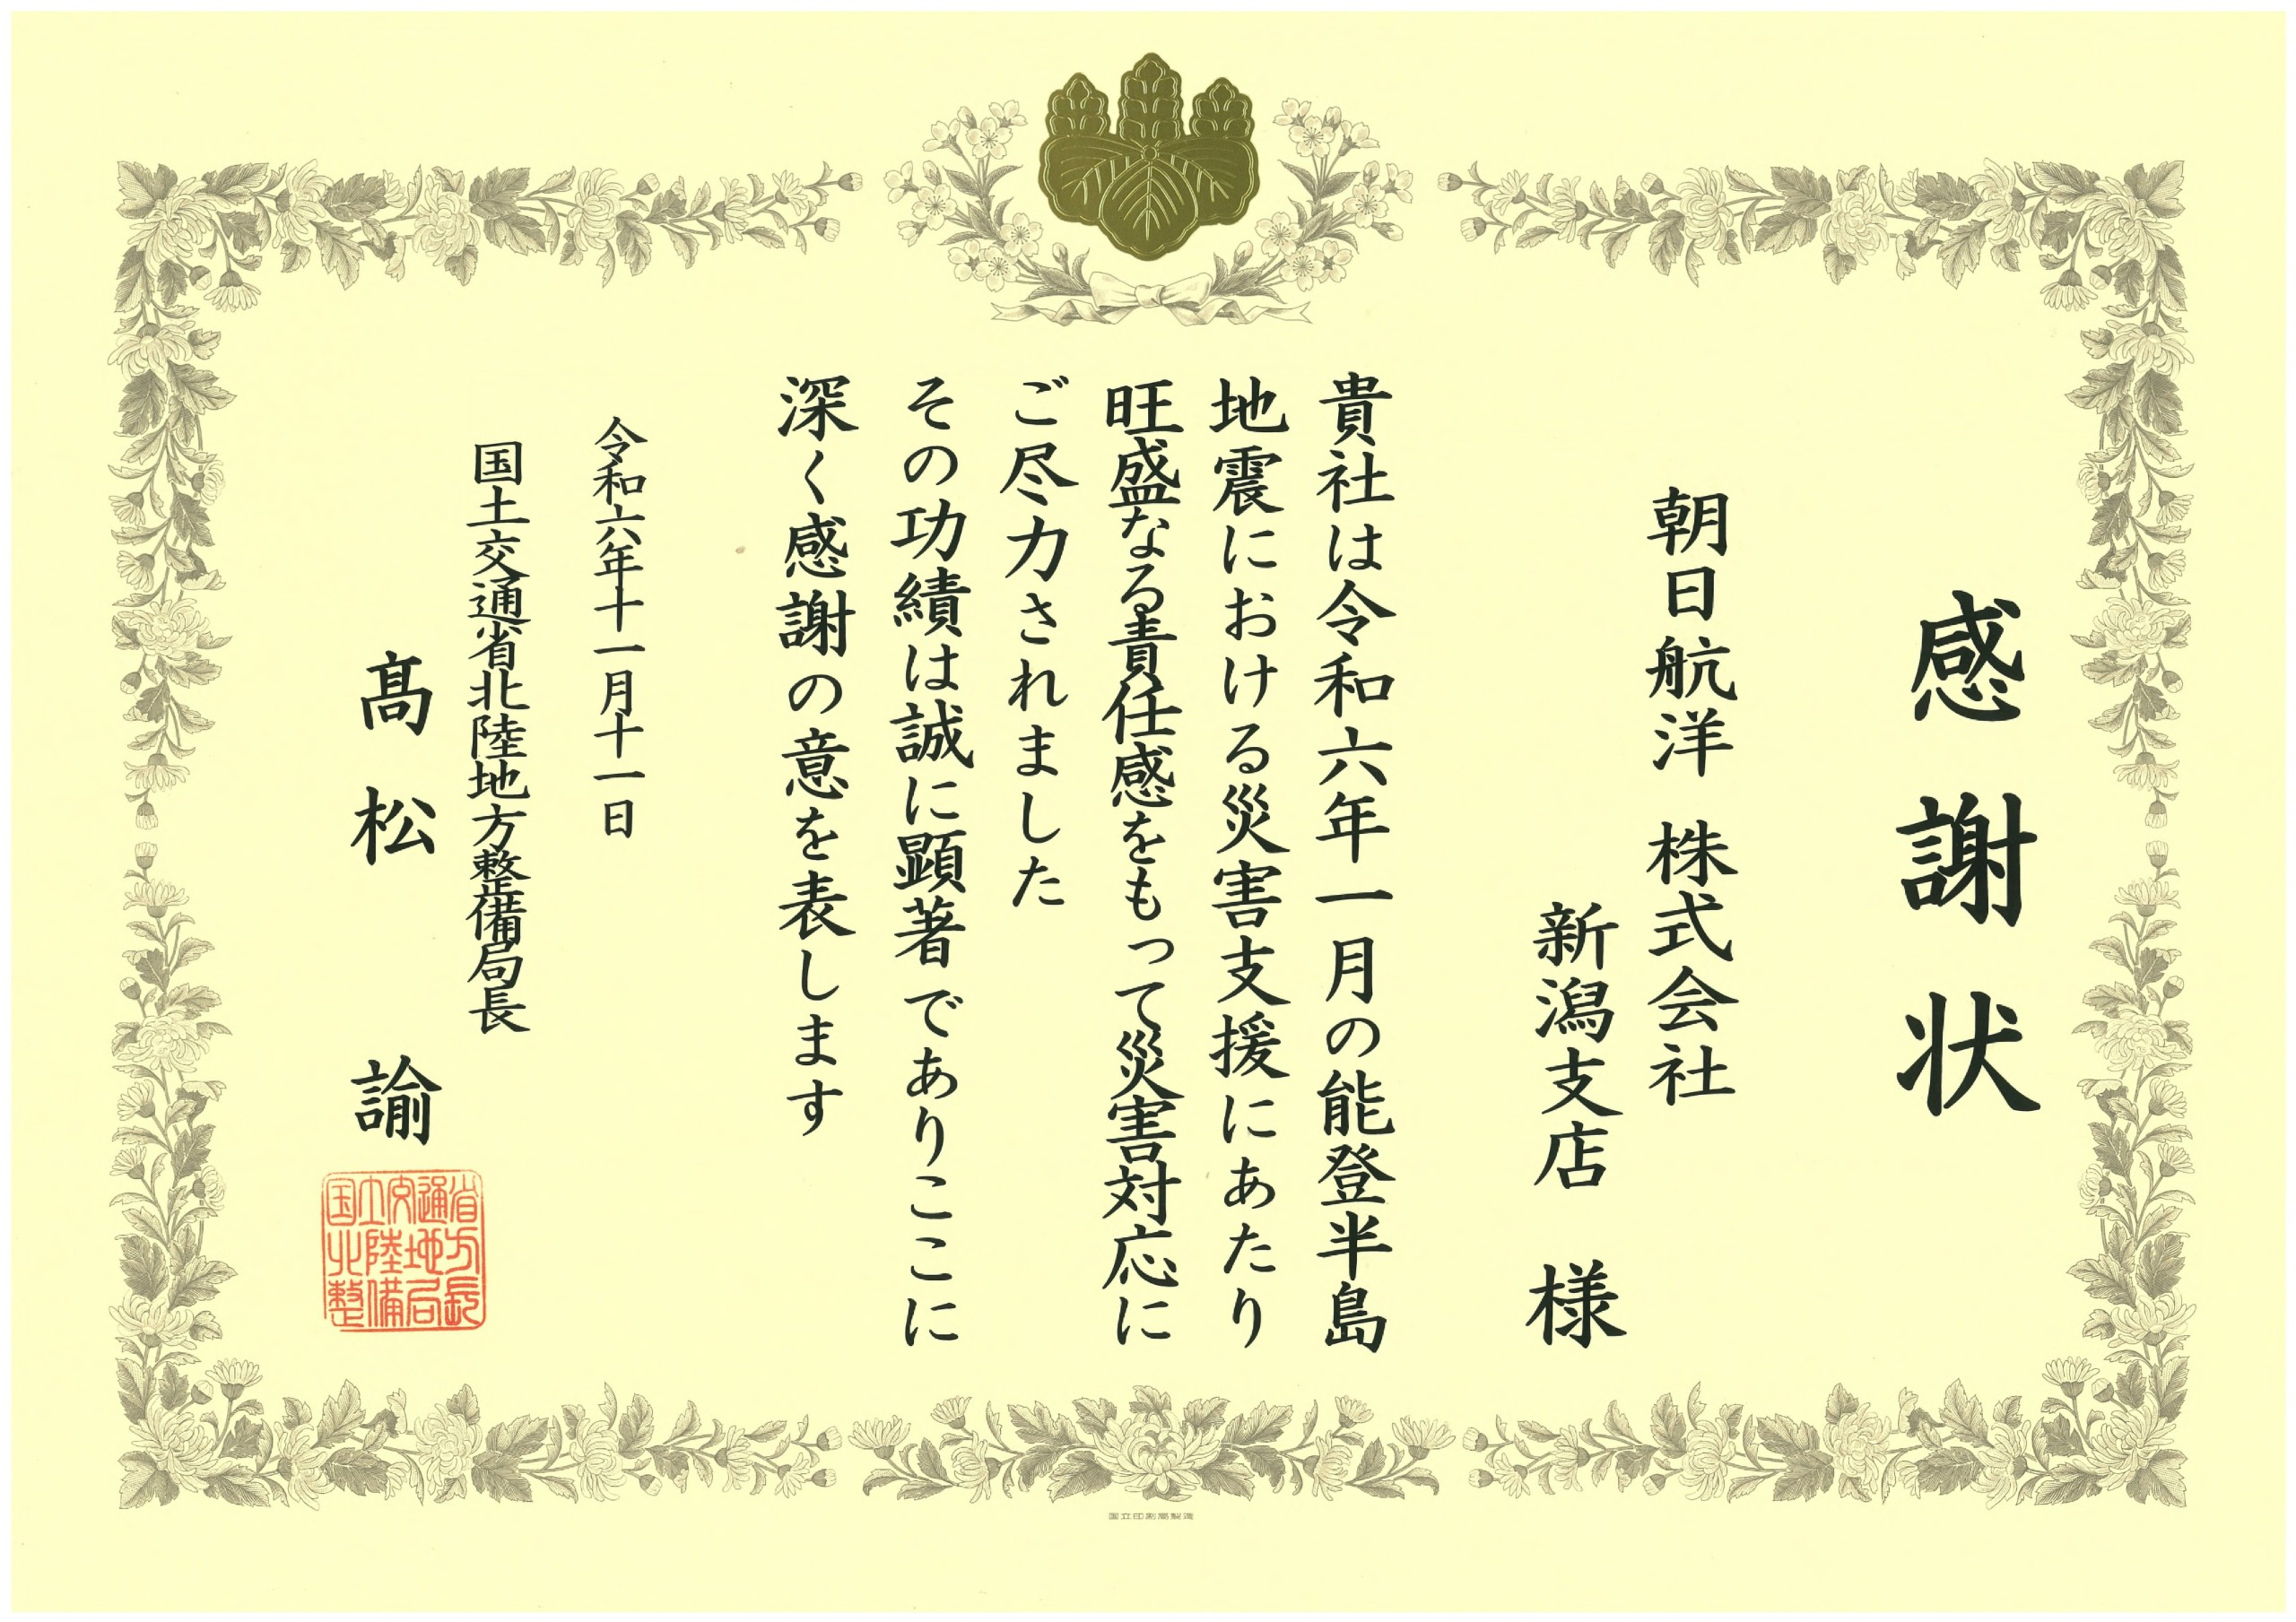 感謝状
朝日航洋 株式会社
新潟支店 様
貴社は令和六年一月の能登半島
地震における災害支援にあたり
旺盛なる責任感をもって災害対応に
ご尽力されました
その功績は誠に顕著でありここに
深く感謝の意を表します
令和六年十一月十一日
国土交通省北陸地方整備局長
髙松 諭
国土交通省
北陸地方
整備局長
国立印刷局製造